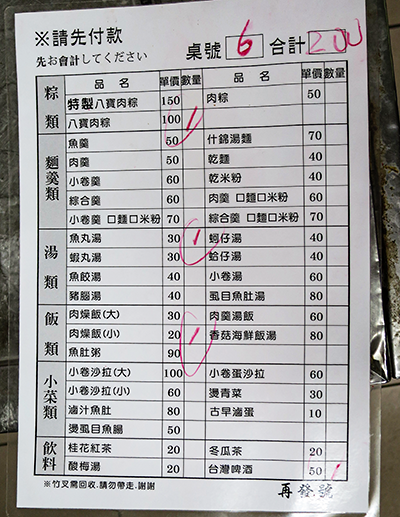 ※請先付款
先お會計してください
桌號 6 合計 200
品名 單價 數量 品名 單價 數量
粽類
特製八寶肉粽 150 肉粽 50
八寶肉粽 100 1
麵羹類
魚羹 50 什錦湯麵 70
肉羹 50 乾麵 40
小卷羹 60 乾米粉 40
綜合羹 60 肉羹 口麵口米粉 60
小卷羹 口麵口米粉 70 綜合羹 口麵口米粉 70
湯類
魚丸湯 30 1 蚵仔湯 40
蝦丸湯 30 蛤仔湯 40
魚餃湯 40 小卷湯 60
豬腦湯 40 虱目魚肚湯 80
飯類
肉燥飯(大) 30 肉羹湯飯 60
肉燥飯(小) 20 1 香菇海鮮飯湯 80
魚肚粥 90
小菜類
小卷沙拉(大) 100 小卷蛋沙拉 60
小卷沙拉(小) 60 燙青菜 30
滷汁魚肚 80 古早滷蛋 10
燙虱目魚腸 50
飲料
桂花紅茶 20 冬瓜茶 20
酸梅湯 20 台灣啤酒 50 1
※竹叉需回收.請勿帶走.謝謝 再發號